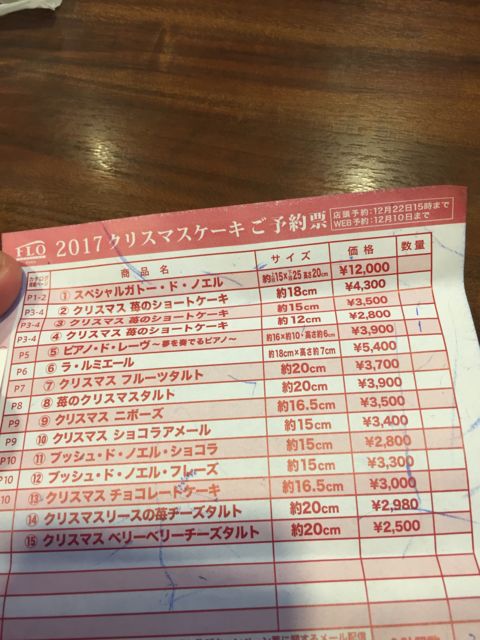 FLO 2017 クリスマスケーキ ご予約票 店頭予約:12月22日15時まで
WEB予約:12月10日まで
商品名 サイズ 価格 数量
P1-2 ① スペシャルガトー・ド・ノエル 高さ20cm ¥12,000
P3-4 ② クリスマス 苺のショートケーキ 約18cm ¥4,300
P3-4 ③ クリスマス 苺のショートケーキ 約15cm ¥3,500
P3-4 ④ クリスマス 苺のショートケーキ 約12cm ¥2,800
P5 ⑤ ピアノ・ド・レーヴ~夢を奏でるピアノ~ 約16×約10・高さ約6cm ¥3,900
P6 ⑥ ラ・ルミエール 約18cm×高さ約7cm ¥5,400
P7 ⑦ クリスマス フルーツタルト 約20cm ¥3,700
P8 ⑧ 苺のクリスマスタルト 約20cm ¥3,900
P9 ⑨ クリスマス ニボーズ 約16.5cm ¥3,500
P9 ⑩ クリスマス ショコラアメール 約15cm ¥3,400
P10 ⑪ ブッシュ・ド・ノエル・ショコラ 約15cm ¥2,800
P10 ⑫ ブッシュ・ド・ノエル・フレーズ 約15cm ¥3,300
⑬ クリスマス チョコレートケーキ 約16.5cm ¥3,000
⑭ クリスマスリースの苺チーズタルト 約20cm ¥2,980
⑮ クリスマス ベリーベリーチーズタルト 約20cm ¥2,500
に関するメール配信